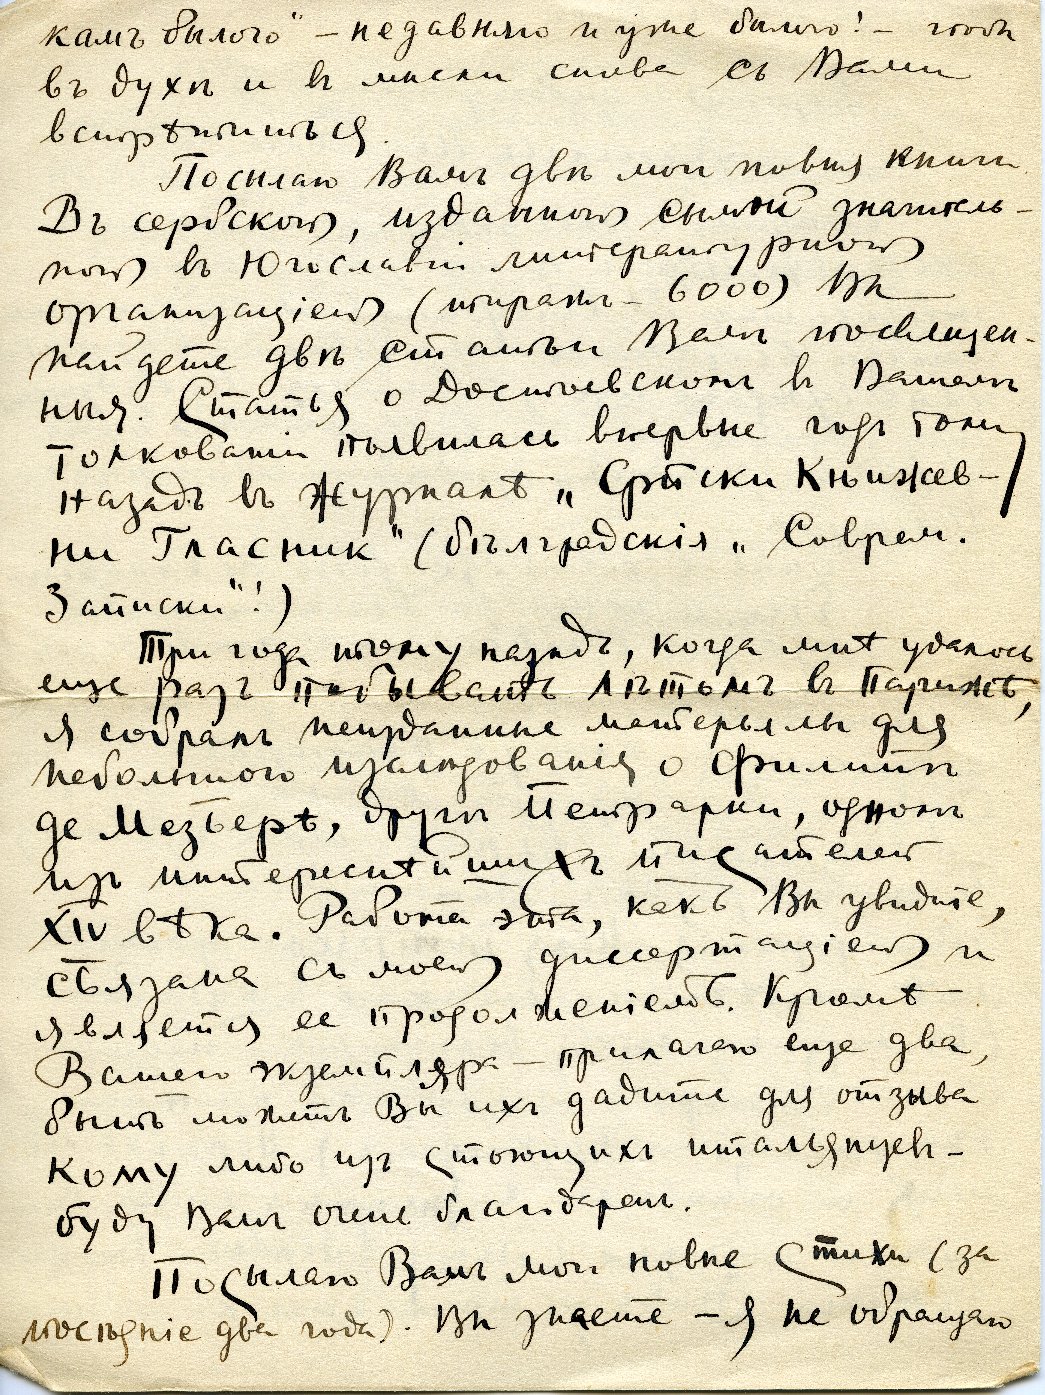 камъ былого" – недавняго и уже былого! – чтобы
въ духѣ и въ мысли снова съ Вами
встрѣтиться.
Посылаю Вамъ двѣ мои новыя книги.
Въ сербской, изданной самой значитель-
ной въ Югославіи литературной
организаціей (тиражъ – 6000) Вы
найдете двѣ статьи Вамъ посвящен-
ныя. Статья о Достоевскомъ въ Вашемъ
толкованіи появилась впервые годъ тому
назадъ въ журналѣ „Српски Књижев-
ни Гласник" (бѣлградскія „Соврем.
Записки"!)
Три года тому назадъ, когда мнѣ удалось
еще разъ побывать лѣтомъ въ Парижѣ,
я собралъ неизданные матерьялы для
небольшого изслѣдованія о Филиппѣ
де Мезьерѣ, другѣ Петрарки, одномъ
изъ интереснѣйшихъ писателей
XIV вѣка. Работа эта, какъ Вы увидите,
связана съ моей диссертаціей и
является ее продолженіемъ. Кромѣ
Вашего экземпляра – прилагаю еще два,
быть можетъ Вы ихъ дадите для отзыва
кому либо изъ стоющихъ итальянцевъ –
буду Вамъ очень благодаренъ.
Посылаю Вамъ мои новые стихи (за
послѣдніе два года). Вы знаете – я не обращаю